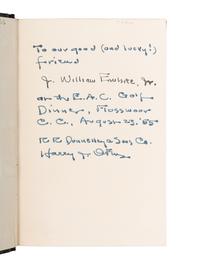 To our good (and lucky!)
friend
J. William
at the E.A.C. Golf
Dinner, Mosswood
C. C., August 23, '55
R. R. Donnelley & Sons Co.
Harry J.